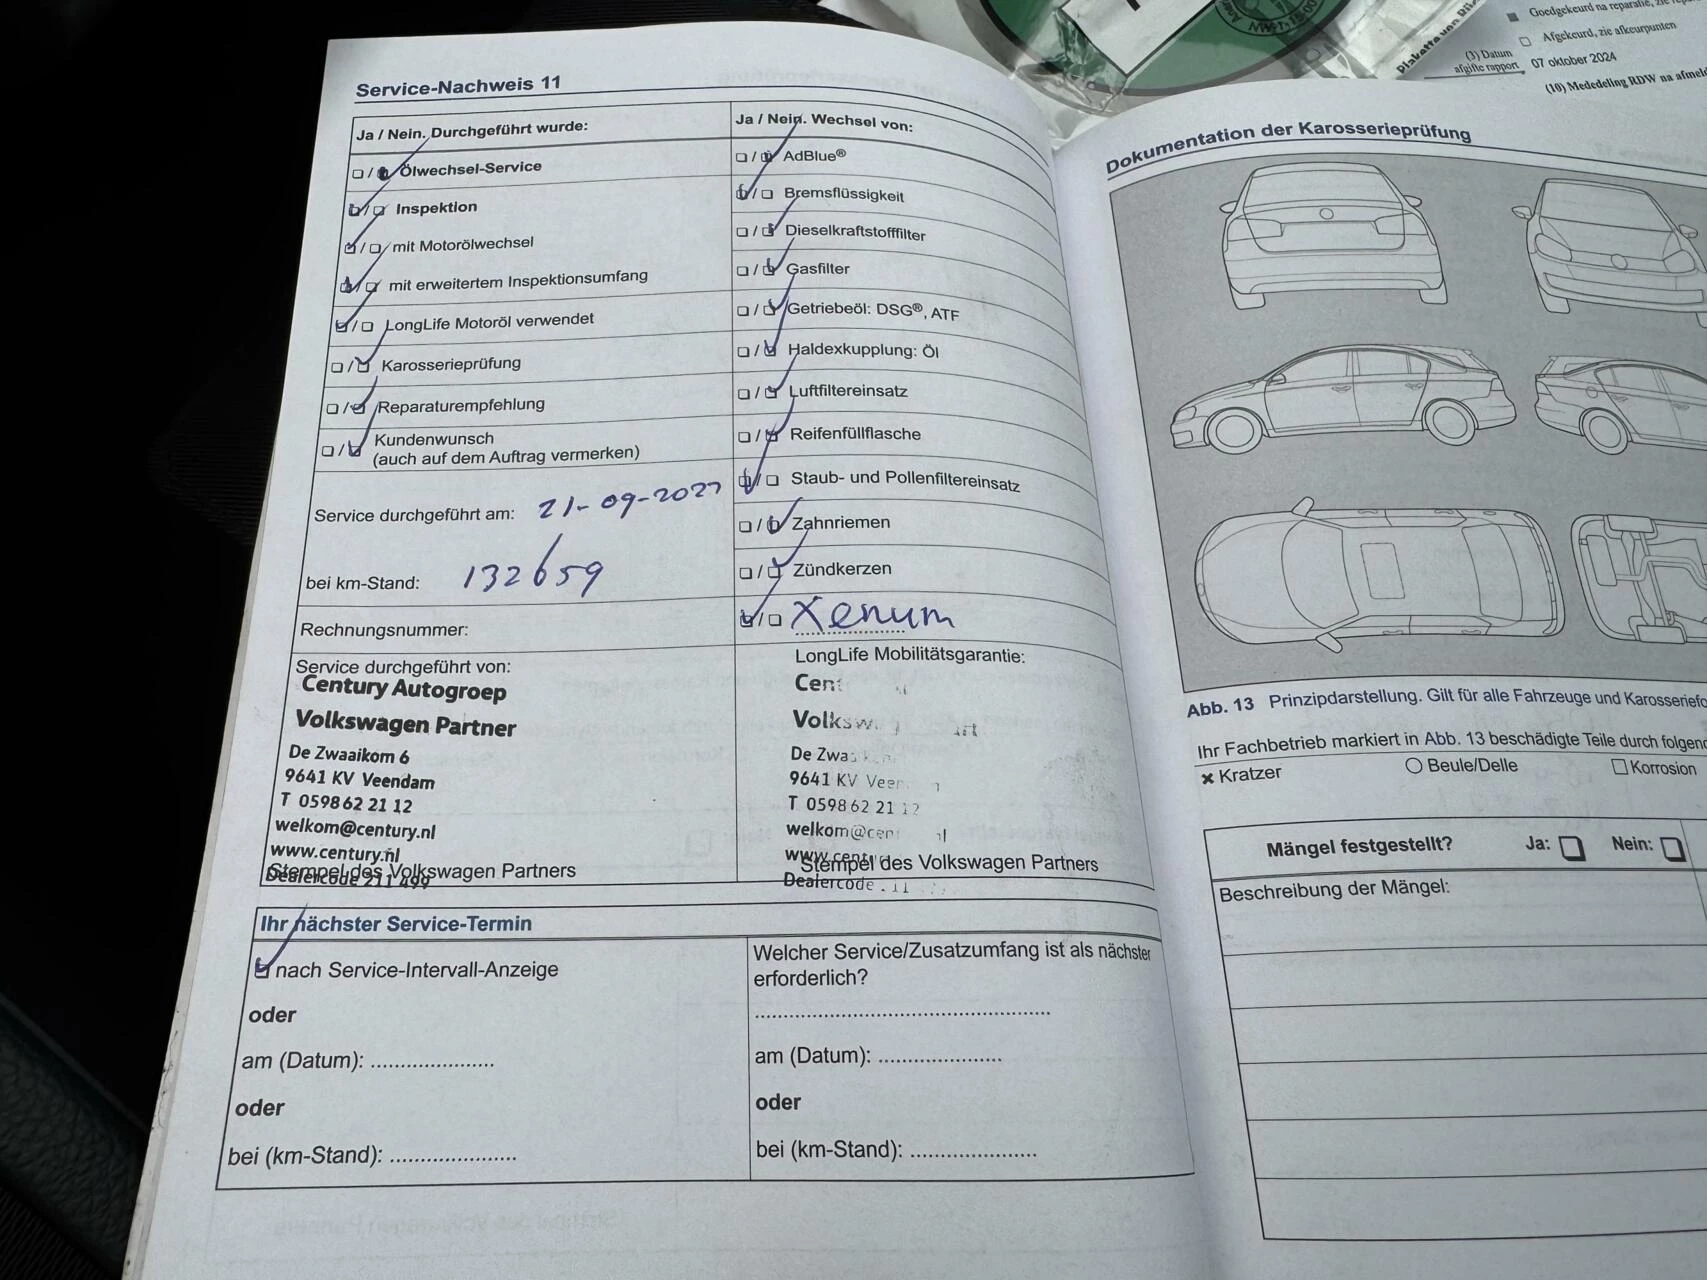 Service-Nachweis 11
Ja / Nein. Durchgeführt wurde:
Ölwechsel-Service
Inspektion
mit Motorölwechsel
mit erweitertem Inspektionsumfang
LongLife Motoröl verwendet
Karosserieprüfung
Reparaturempfehlung
Kundenwunsch
(auch auf dem Auftrag vermerken)
Service durchgeführt am: 21-09-
bei km-Stand: 132659
Rechnungsnummer:
Service durchgeführt von:
Century Autogroep
Volkswagen Partner
De Zwaaikom 6
9641 KV Veendam
T 0598 62 21 12
welkom@century.nl
www.century.nl
Stempel des Volkswagen Partners
Dealercode 211 499
Ja / Nein. Wechsel von:
AdBlue®
Bremsflüssigkeit
Dieselkraftstofffilter
Gasfilter
Getriebeöl: DSG®, ATF
Haldexkupplung: Öl
Luftfiltereinsatz
Reifenfüllflasche
Staub- und Pollenfiltereinsatz
Zahnriemen
Zündkerzen
Xenum
LongLife Mobilitätsgarantie:
De
9641 KV
T 0598 62 21 12
Stempel des Volkswagen Partners
Dealercode
Ihr nächster Service-Termin
nach Service-Intervall-Anzeige
oder
am (Datum): .....................
oder
bei (km-Stand): .....................
Welcher Service/Zusatzumfang ist als nächster
erforderlich?
am (Datum): .....................
oder
bei (km-Stand): .....................
Goedgekeurd na reparatie, zie
Afgekeurd, zie afkeurpunten
(3) Datum
afgifte rapport 07 oktober 2024
(10) Mededeling RDW na
Plakette von
Dokumentation der Karosserieprüfung
Abb. 13 Prinzipdarstellung. Gilt für alle Fahrzeuge und
Ihr Fachbetrieb markiert in Abb. 13 beschädigte Teile durch
Kratzer
Beule/Delle
Korrosion
Mängel festgestellt? Ja: Nein:
Beschreibung der Mängel: